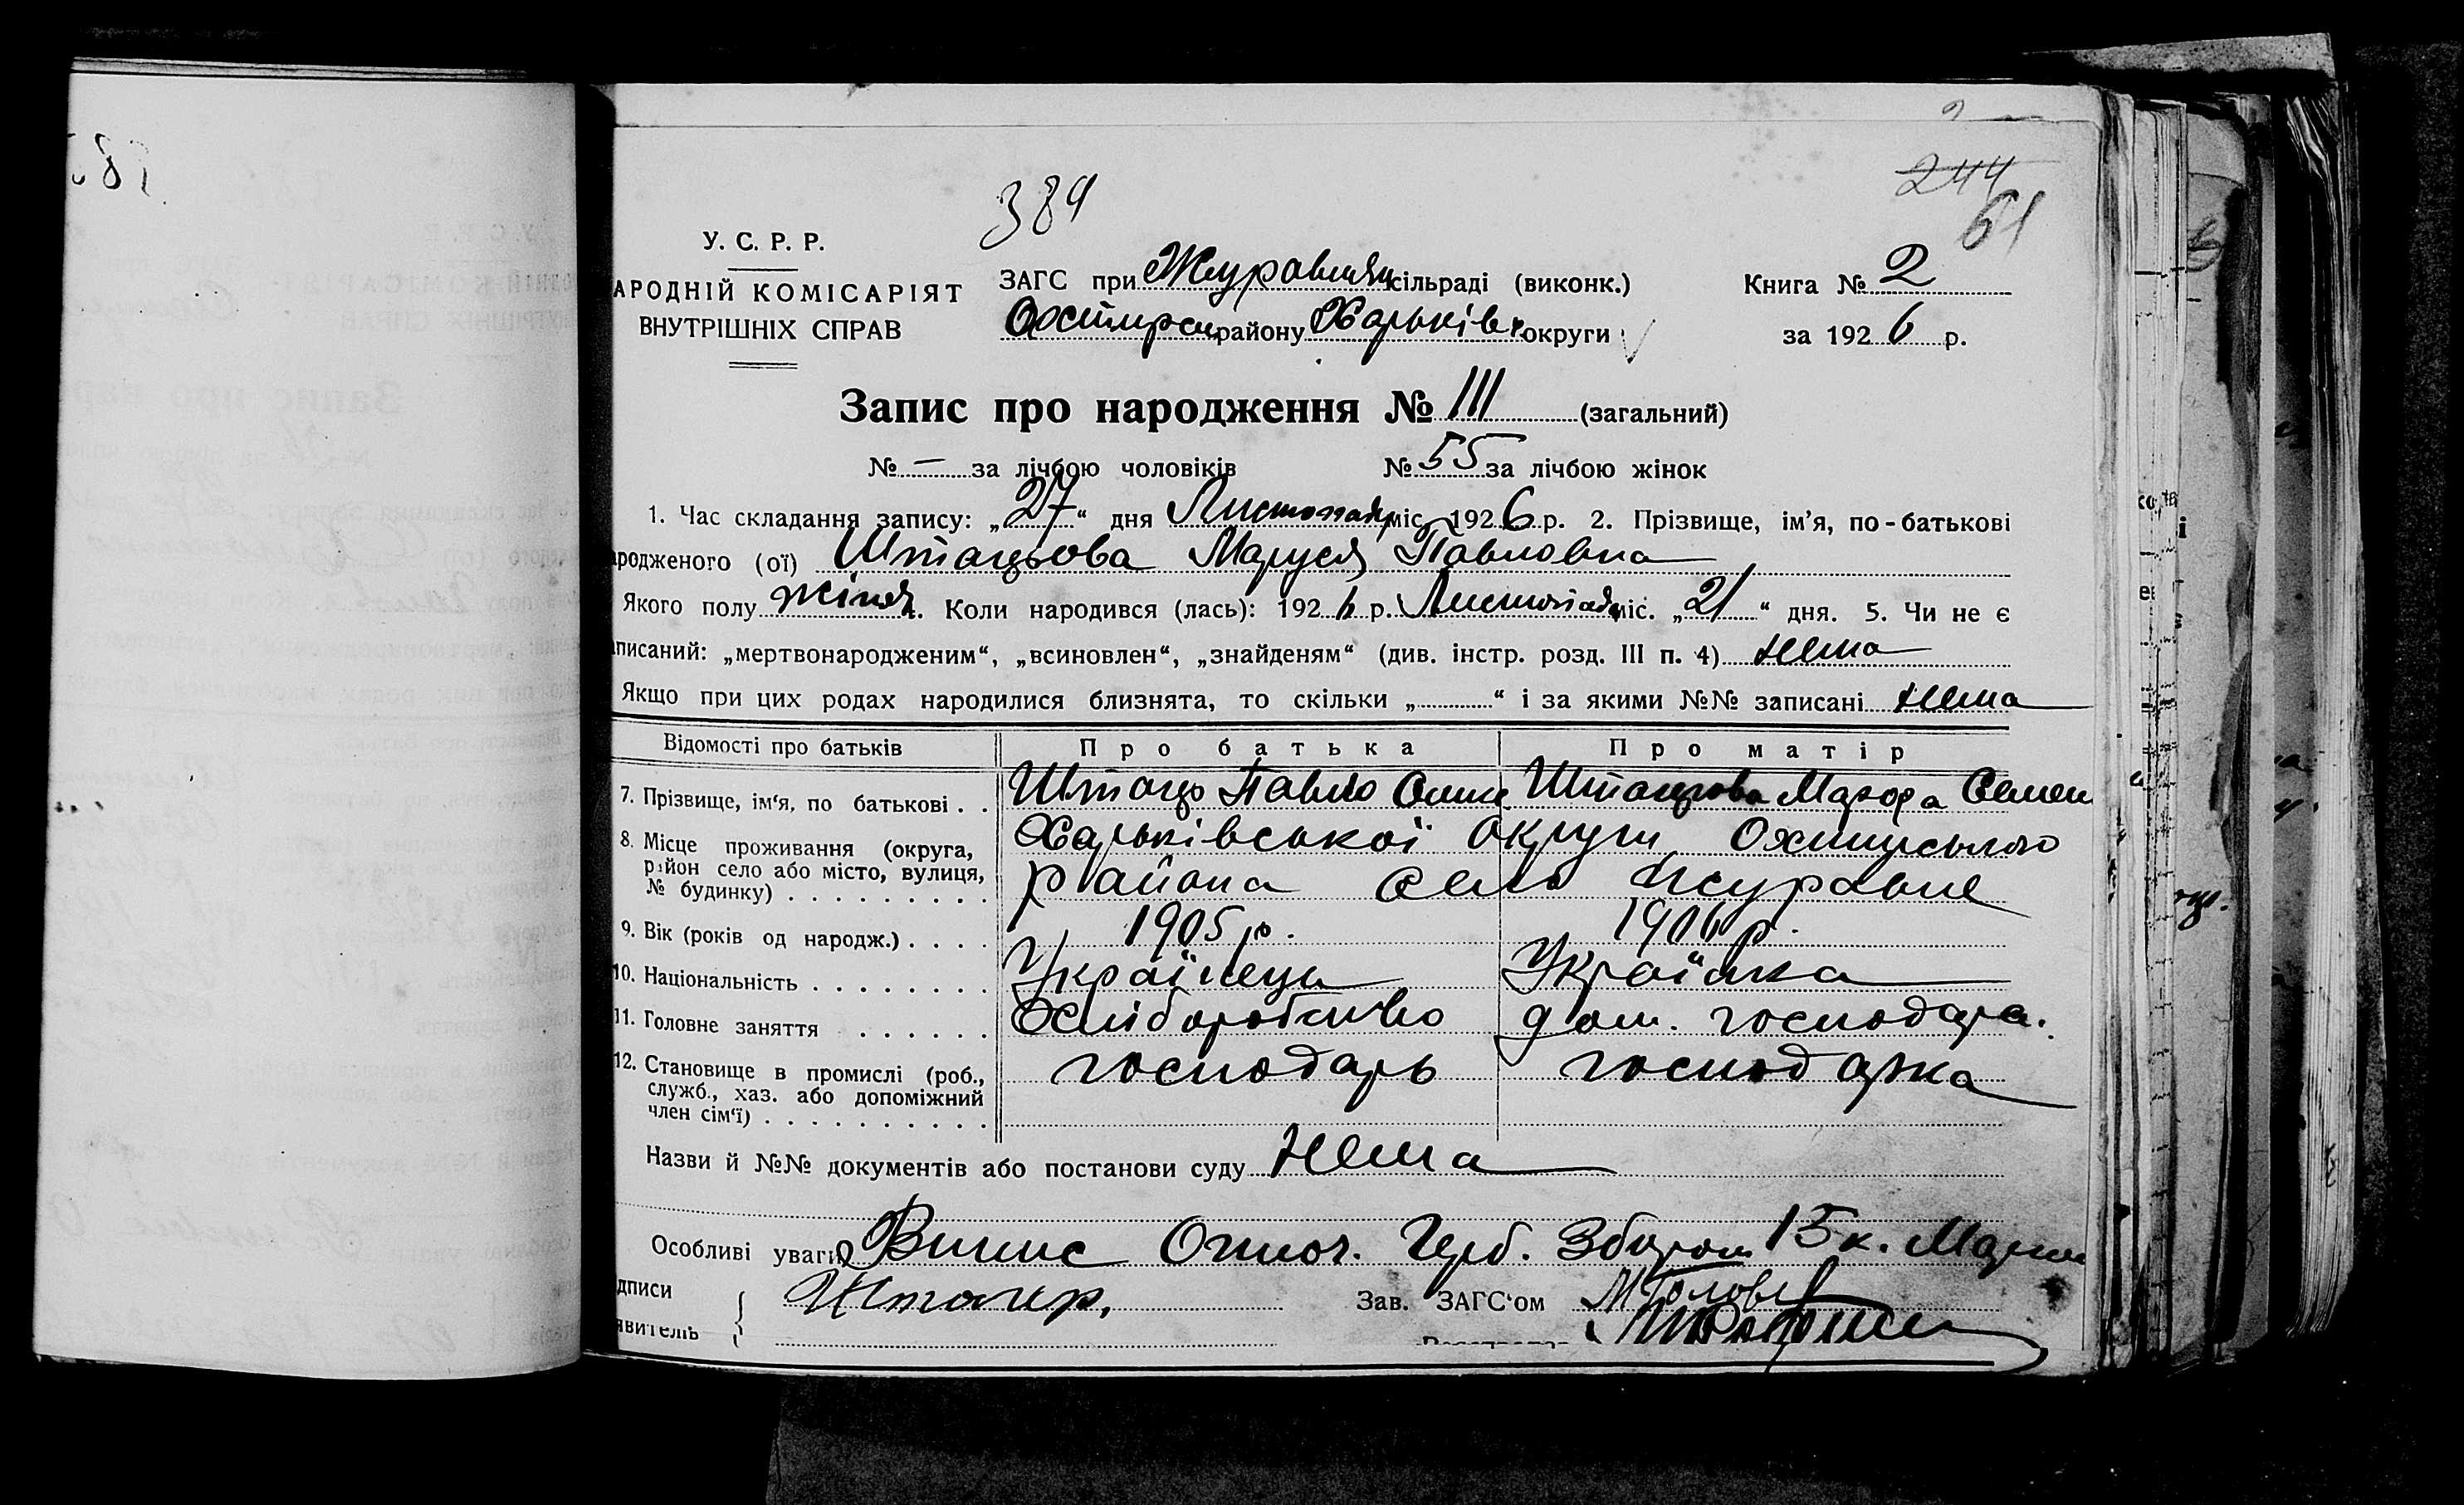 384
244
61
У. С. Р. Р.
АРОДНІЙ КОМІСАРІЯТ
ВНУТРІШНІХ СПРАВ
ЗАГС при сільраді (виконк.)
Охтирськ району Харьків. округи
Книга № 2
за 1926 р.
Запис про народження № 111 (загальний)
№ — за лічбою чоловіків № 55 за лічбою жінок
1. Час складання запису: „27“ дня Листопада міс. 1926 р. 2. Прізвище, ім'я, по-батькові
ародженого (ої) Маруся Павловна
Якого полу жіноч. Коли народився (лась): 1926 р. Листопада міс. „21“ дня. 5. Чи не є
аписаний: „мертвонародженим“, „всиновлен“, „знайденям“ (див. інстр. розд. III п. 4) нема
Якщо при цих родах народилися близнята, то скільки „ “ і за якими №№ записані нема
Відомості про батьків Про батька Про матір
7. Прізвище, ім'я, по батькові . . Павло Семен
8. Місце проживання (округа, район село або місто, вулиця, № будинку) . . . . . . . . . Харьківської округи Охтирського
района село Журавне
9. Вік (років од народж.) . . . . 1905 р. 1906 р.
10. Національність . . . . . . . . Українець Українка
11. Головне заняття . . . . . . Хліборобство дом. господар.
12. Становище в промислі (роб., служб., хаз. або допоміжний член сім'ї) . . . . . . . . . . господарь господарка
Назви й №№ документів або постанови суду нема
Особливі уваги Випис Герб. Збором 15 к.
дписи
явитель
Зав. ЗАГС'ом